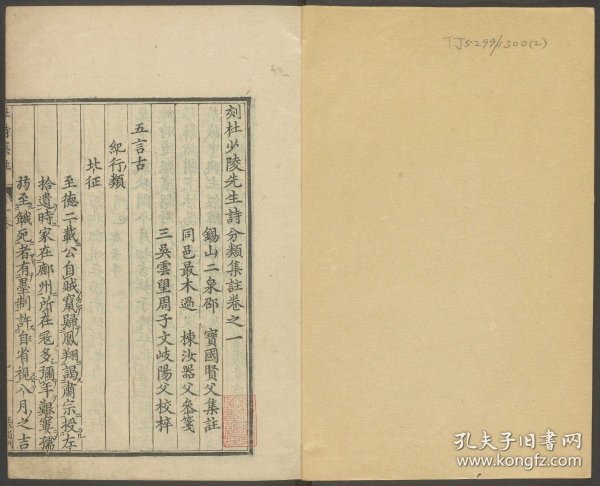 TJ5299/1300(2)
刻杜少陵先生詩分類集註卷之一
錫山二泉邵 寶國賢父集註
同邑最木過 棟汝器父叅箋
三吳雲望周子文岐陽父校梓
五言古
紀行類
北征
至德二載公自賊竄歸鳳翔謁肅宗授左
拾遺時家在鄜州所在寇多彌年艱窶孺
弱至餓死者有墨制許自省視八月之吉
孔夫子旧书网
www.kongfz.com